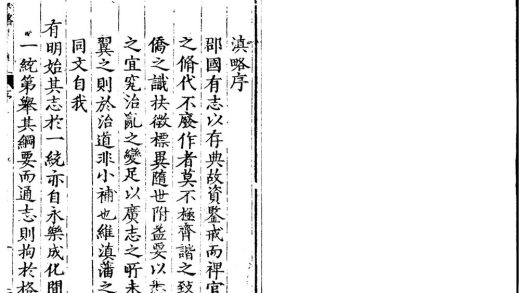 滇略序
郡國有志以存典故資鑒戒而稗官
之脩代不廢作者莫不極齊諧之致
僑之識扶徵標異隨世附益要以
之宜究治亂之變足以廣志之所未
翼之則於治道非小補也維滇藩之
同文自我
有明始其志於一統亦自永樂成化間
一統第舉其綱要而通志則拘於格